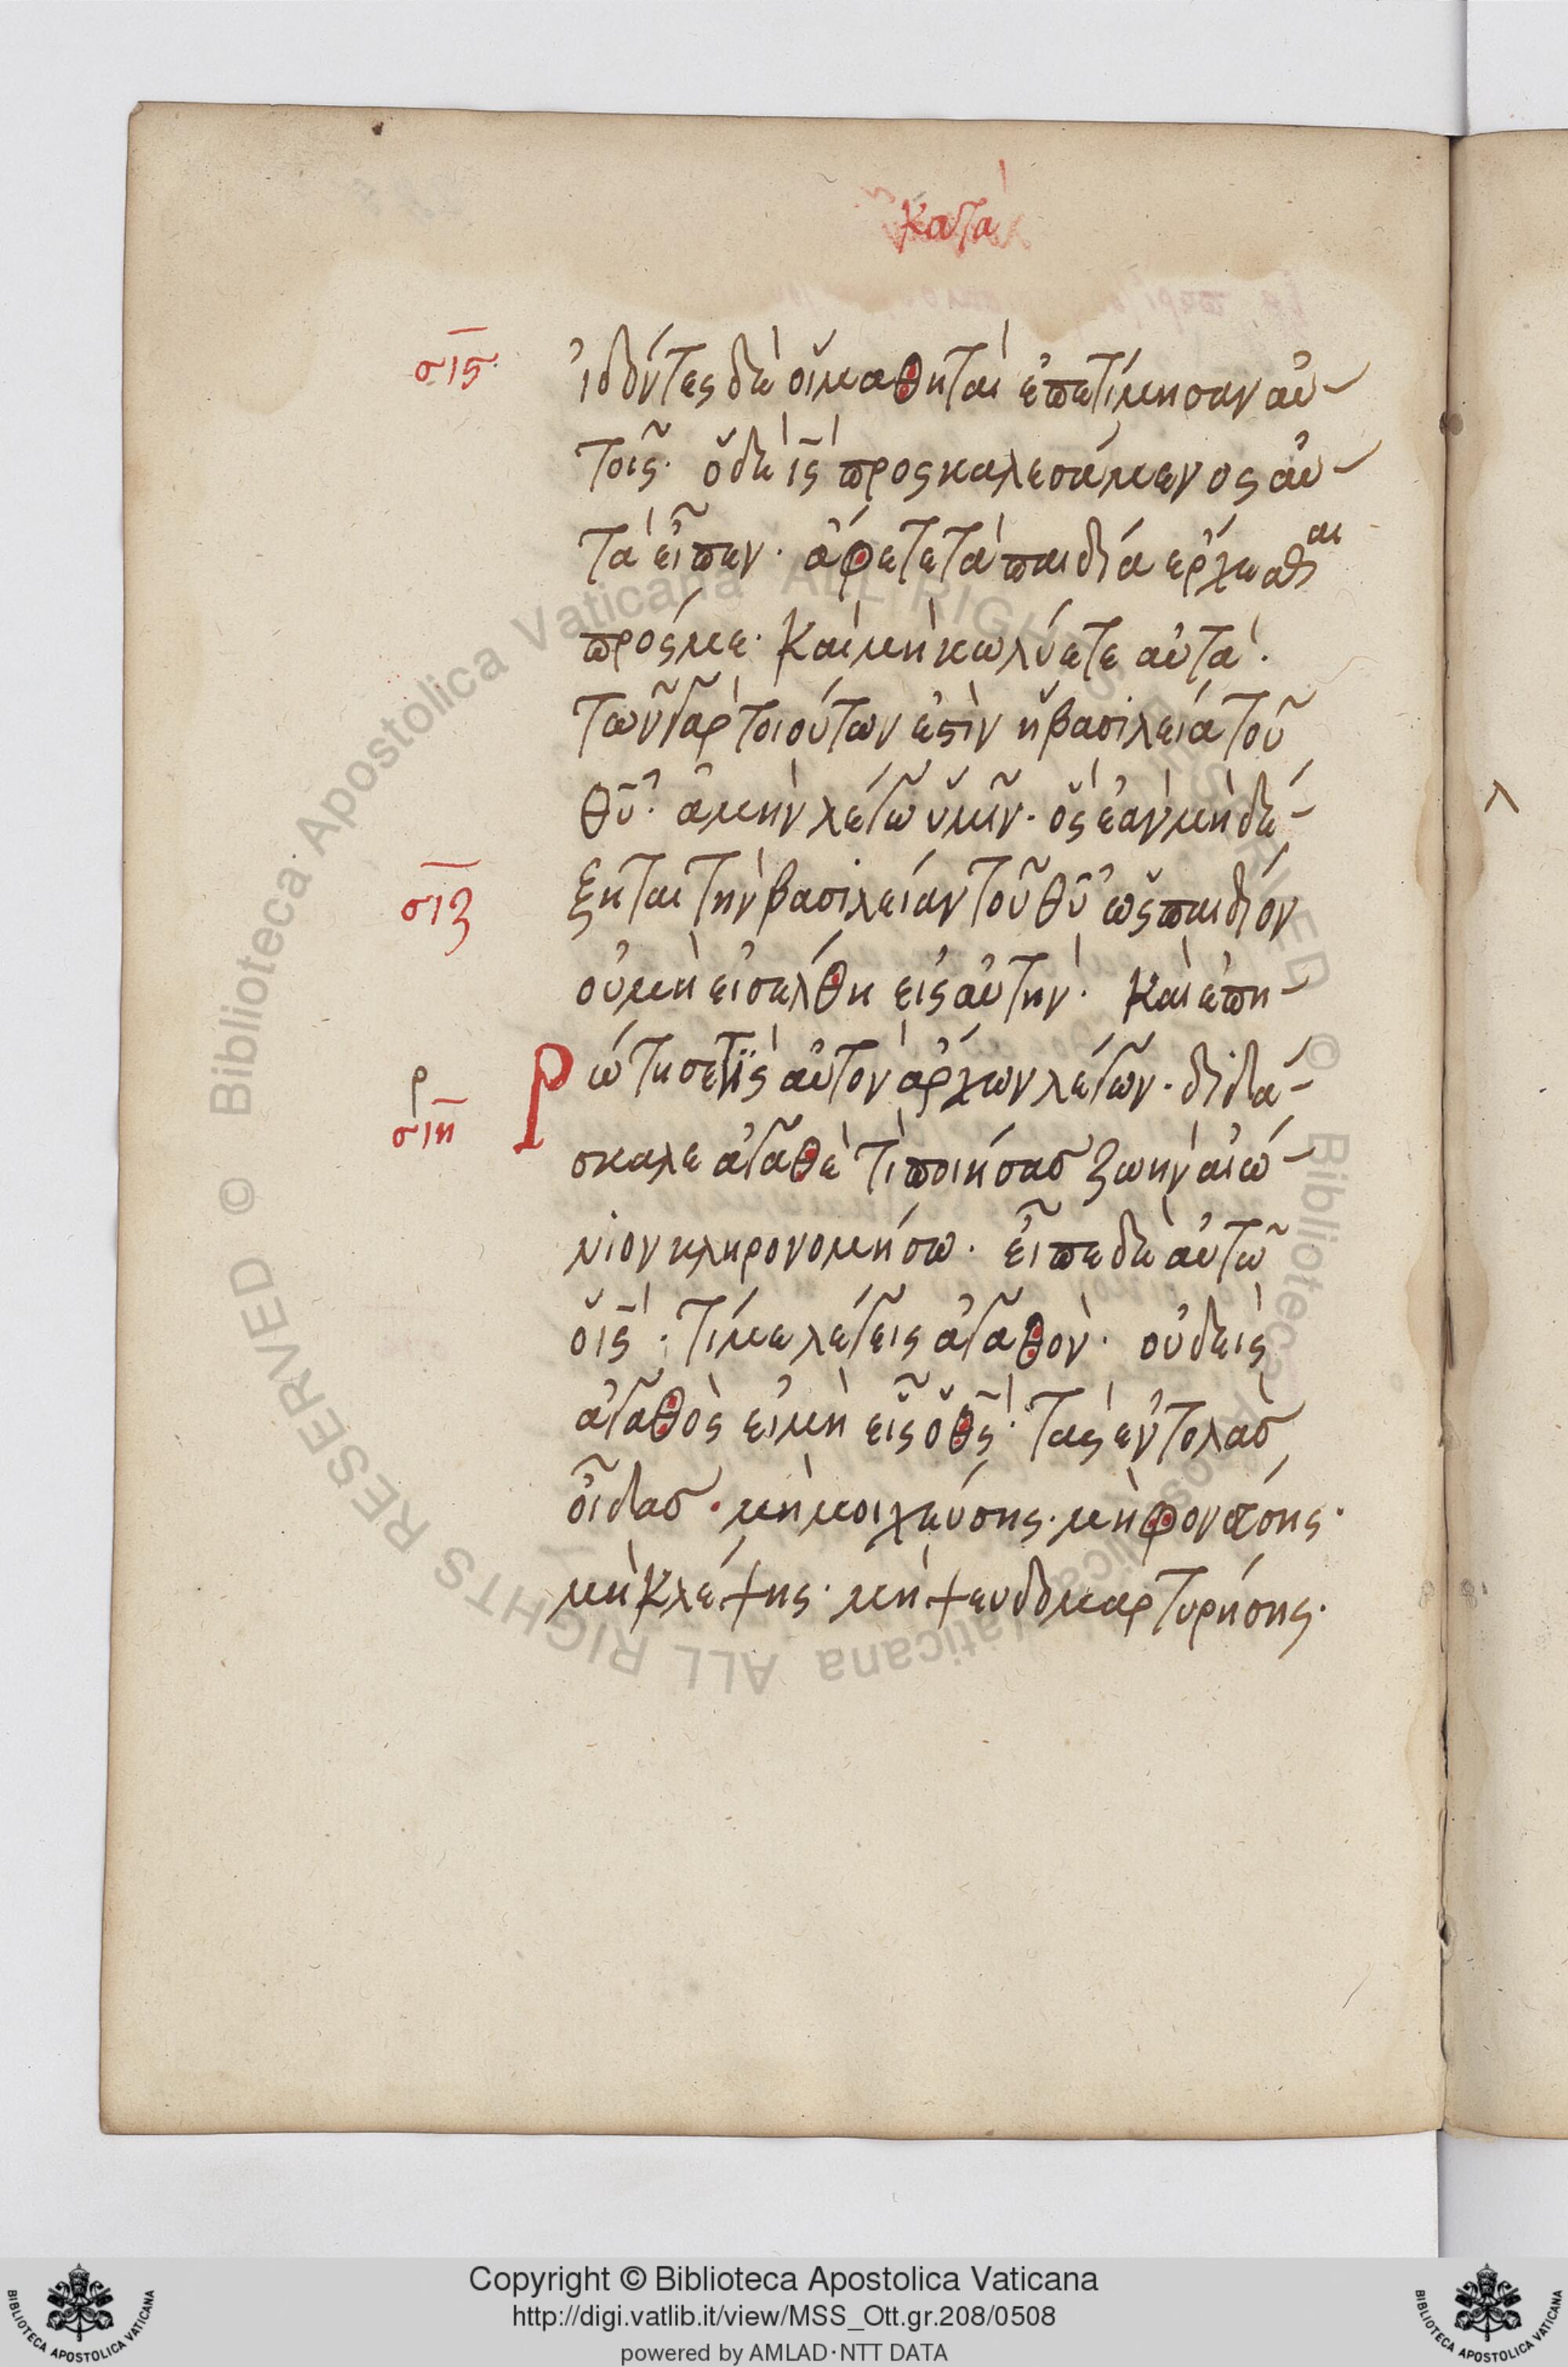 κατὰ
σιϛ
ἰδόντες δὲ οἱ μαθηταὶ ἐπετίμησαν αὐ-
τοῖς· ὁ δὲ ις̅ προςκαλεσάμενος αὐ-
τὰ εἶπεν· ἄφετε τὰ παιδία ἔρχεσθαι
πρός με· καὶ μὴ κωλύετε αὐτά·
τῶν γὰρ τοιούτων ἐστὶν ἡ βασιλεία τοῦ
θυ̅· ἀμὴν λέγω ὑμῖν· ὃς ἐὰν μὴ δέ-
σιζ
ξηται τὴν βασιλείαν τοῦ θυ̅ ὡς παιδίον
οὐ μὴ εἰσέλθη εἰς αὐτήν· καὶ ἐπη-
ρ
σιη
ρώτησέ τις αὐτὸν ἄρχων λέγων· διδά-
σκαλε ἀγαθὲ τί ποιήσας ζωὴν αἰώ-
νιον κληρονομήσω· εἶπε δὲ αὐτῶ
ὁ ις̅· τί με λέγεις ἀγαθόν· οὐδεὶς
ἀγαθὸς εἰ μὴ εἷς ὁ θς̅· τὰς ἐντολὰς
οἶδας· μὴ μοιχεύσης· μὴ φονεύσης·
μὴ κλέψης· μὴ ψευδομαρτυρήσης·
λ
© Biblioteca Apostolica Vaticana ALL RIGHTS RESERVED © Biblioteca Apostolica Vaticana ALL RIGHTS RESERVED
Copyright © Biblioteca Apostolica Vaticana
http://digi.vatlib.it/view/MSS_Ott.gr.208/0508
powered by AMLAD·NTT DATA
BIBLIOTECA APOSTOLICA VATICANA
BIBLIOTECA APOSTOLICA VATICANA